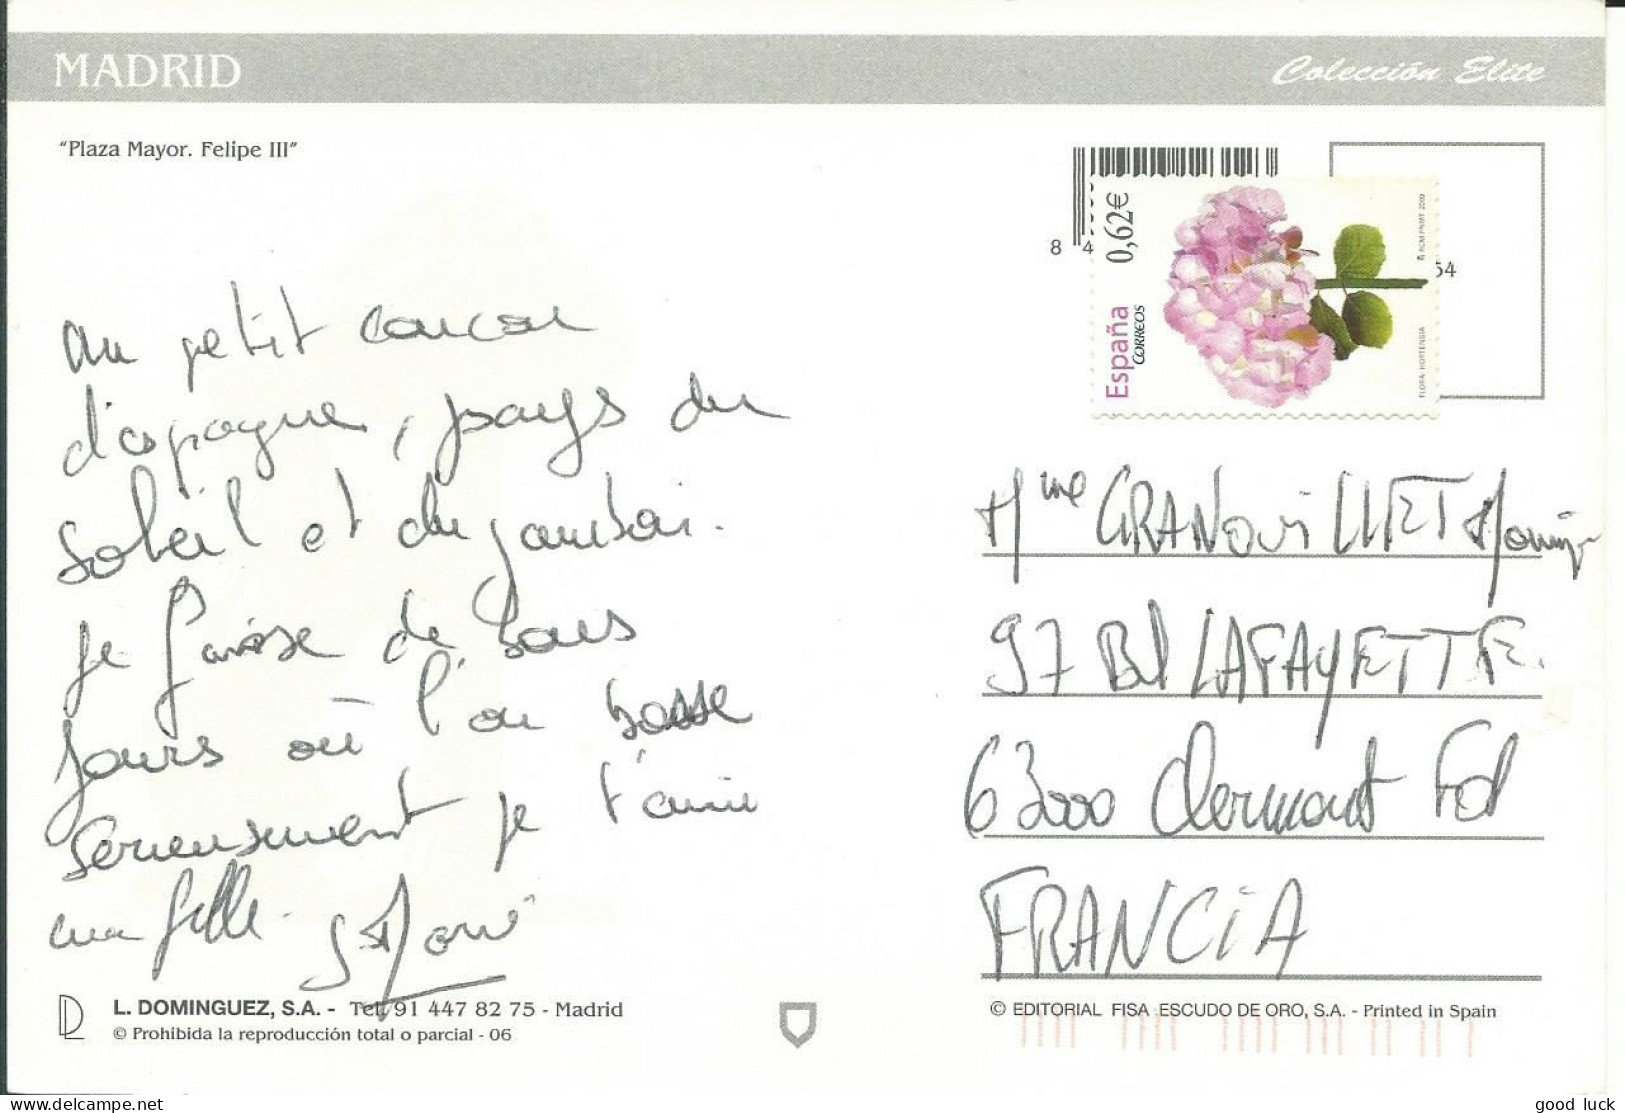 MADRID
Colección Elite
"Plaza Mayor. Felipe III"
8 4
54
0,62€
España
CORREOS
RCM FNMT 2009
FLORA: HORTENSIA
un petit coucou
d'espagne, pays du
soleil et du jambon.
je passe de bons
jours où l'on bosse
serieusement je t'aime
ma fille.
Mme GRANOUiLLET Monique
97 Bd LAFAYETTE.
63000 Clermont Fd
FRANCiA
L. DOMINGUEZ, S.A. - Tel. 91 447 82 75 - Madrid
© Prohibida la reproducción total o parcial - 06
© EDITORIAL FISA ESCUDO DE ORO, S.A. - Printed in Spain
www.delcampe.net
good luck